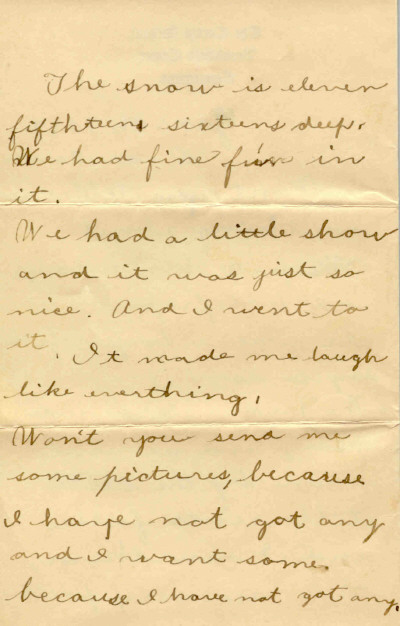 The snow is eleven
fifthteens sixteens deep.
We had fine fun in
it.
We had a little show
and it was just so
nice. And I went to
it. It made me laugh
like everthing.
Won't you send me
some pictures, because
I have not got any
and I want some.
because I have not got any.